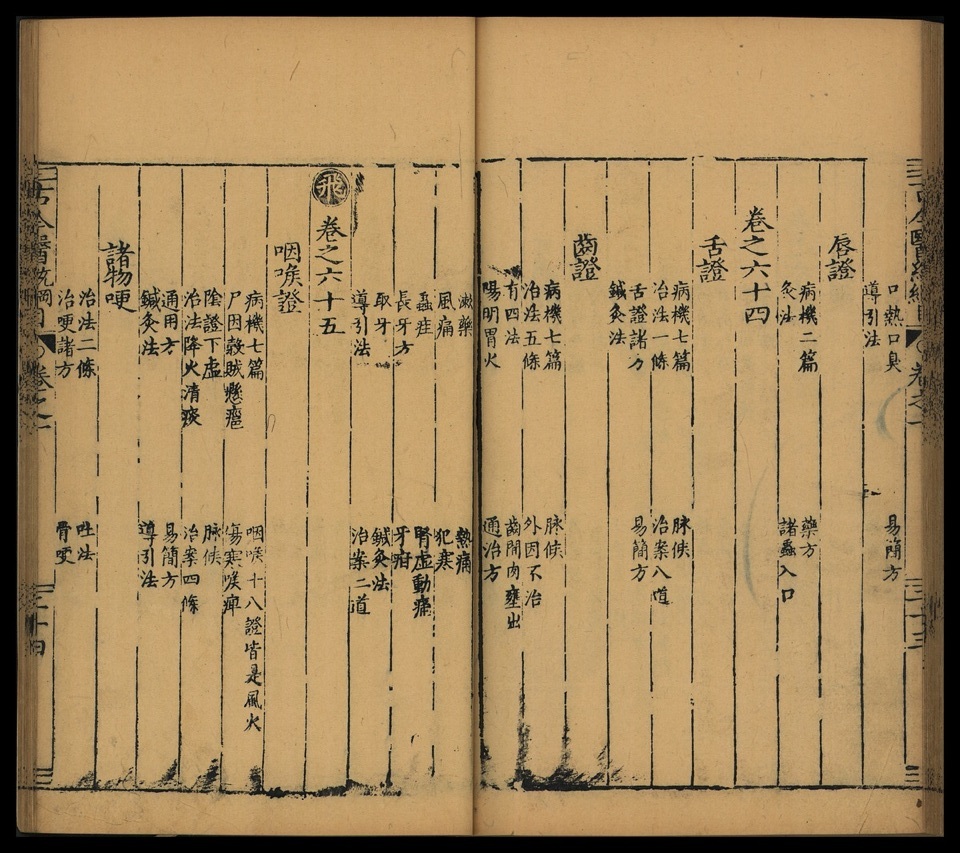 古今醫統綱目 卷之一 二十三
口熱口臭 易簡方
導引法
唇證
病機二篇 藥方
灸法 諸蟲入口
卷之六十四
舌證
病機七篇 脉候
治法一條 治案八道
舌證諸方 易簡方
鍼灸法
齒證
病機七篇 脉候
治法五條 外因不治
有四法 齒間肉壅出
陽明胃火 通治方
漱藥 熱痛
風痛 犯寒
蟲疰 腎虛動痛
長牙方 牙疳
取牙 鍼灸法
導引法 治案二道
飛
卷之六十五
咽喉證
病機七篇 咽喉十八證皆是風火
尸因 賊懸癰 傷寒喉痺
陰證下虛 脉候
治法降火清痰 治案四條
通用方 易簡方
鍼灸法 導引法
諸物哽
治法二條 吐法
治哽諸方 骨哽
古今醫統綱目 卷之一 二十四